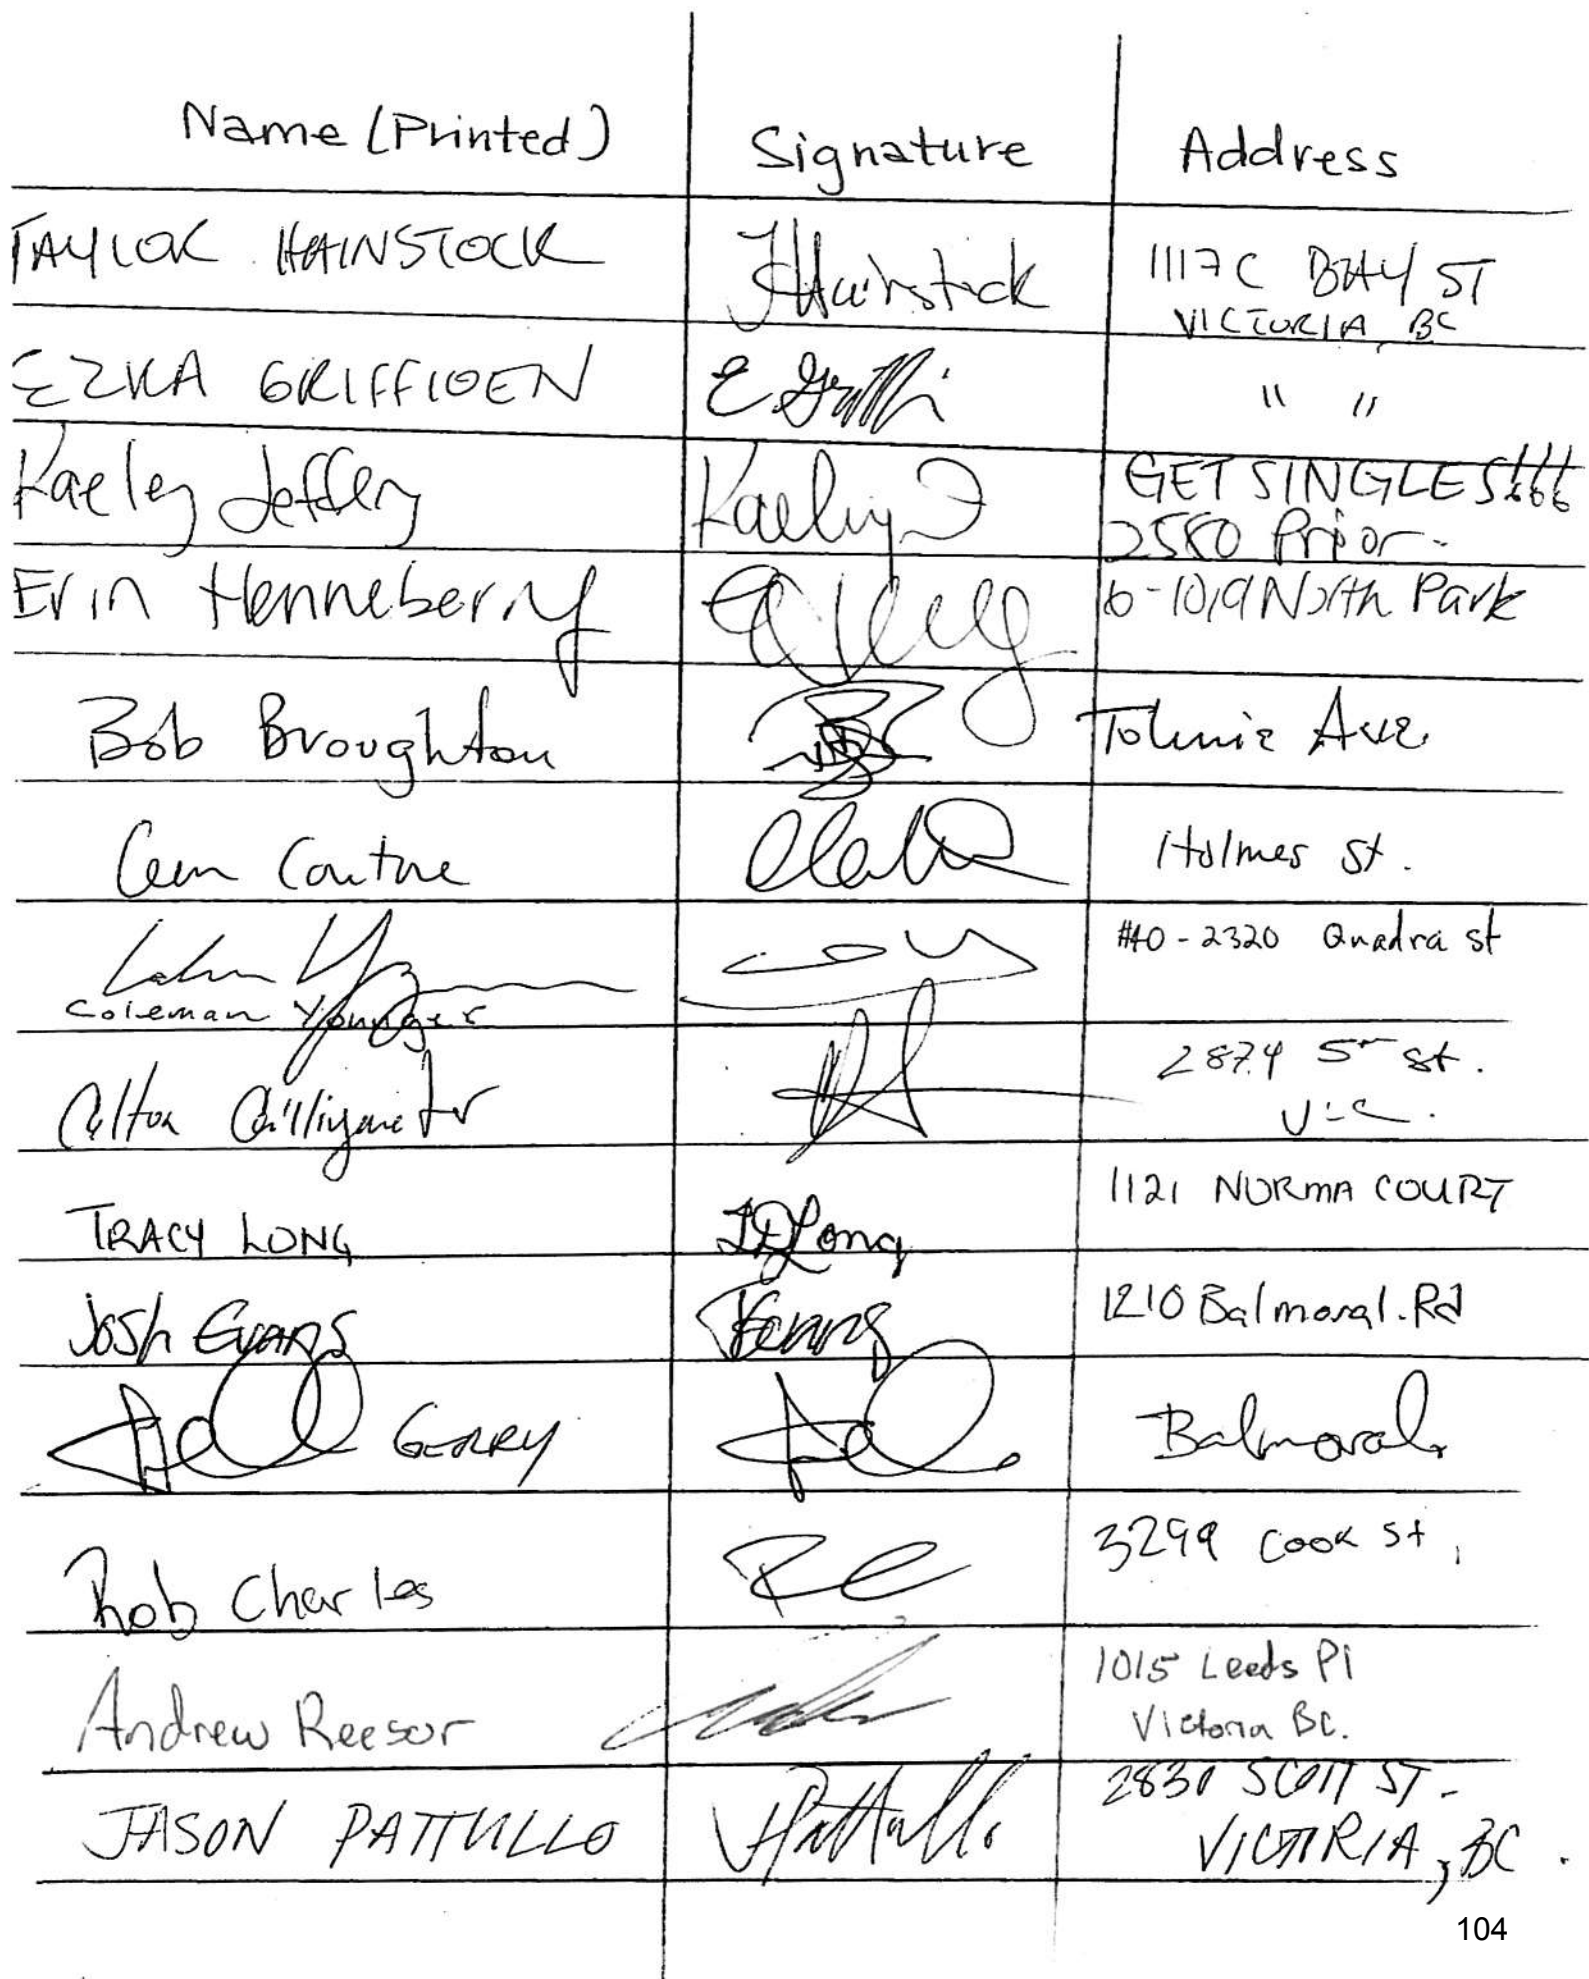 Name (Printed) Signature Address
TAYLOR HAINSTOCK THainstock 1117C BAY ST
VICTORIA, BC
EZRA GRIFFIOEN E Griffi " "
Kaeley Jeffery Kaeley J GET SINGLES!!!
2580 Prior
Erin Henneberry 6-1019 North Park
Bob Broughton Tolmie Ave.
Couture Holmes St.
#40-2320 Quadra st
Coleman Younger
Colton 2874 5th st.
Vic.
TRACY LONG Long 1121 NORMA COURT
Josh Evans Evans 1210 Balmoral. Rd
GERRY Balmoral
Rob Charles RC 3299 Cook St.
Andrew Reesor 1015 Leeds Pl
Victoria BC.
JASON PATTULLO JPattullo 2830 SCOTT ST.
VICTORIA, BC.
104